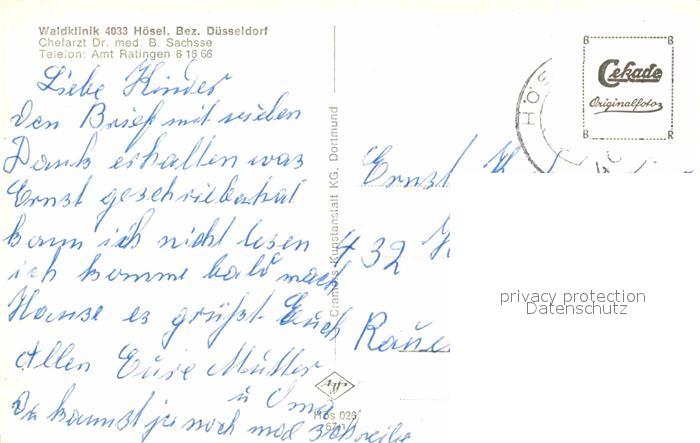 Waldklinik 4033 Hösel, Bez. Düsseldorf
Chefarzt Dr. med. B. Sachsse
Telefon: Amt Ratingen 6 16 66
Liebe Kinder
den Brief mit vielen
Dank erhalten was
Ernst geschrieben hat
kann ich nicht lesen
ich komme bald nach
Hause es grüßt Euch
Allen Eure Mutter
u Oma
Du kannst ja noch mal schreiben
Cramers Kunstanstalt KG, Dortmund
Hös 026
B B
Cekade
Originalfoto
B R
HÖS
Ernst
432
privacy protection
Datenschutz